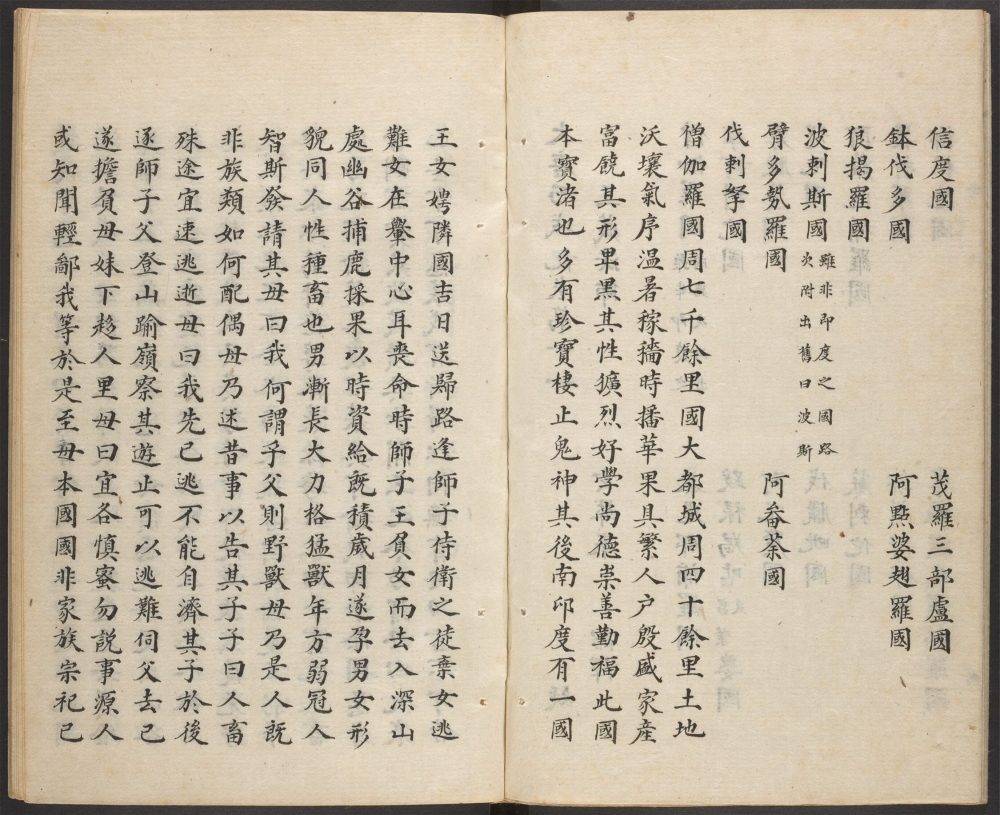 信度國　茂羅三部盧國
鉢伐多國　阿㸃婆翅羅國
狼揭羅國
波剌斯國 雖非印度之國路
次附出舊曰波斯
臂多勢羅國　阿軬荼國
伐剌拏國
僧伽羅國周七千餘里國大都城周四十餘里土地
沃壤氣序温暑稼穡時播華果具繁人户殷盛家産
富饒其形卑黑其性獷烈好學尚德崇善勤福此國
本寶渚也多有珍寶棲止鬼神其後南印度有一國
王女娉隣國吉日送歸路逢師子侍衛之徒棄女逃
難女在轝中心耳喪命時師子王負女而去入深山
處幽谷捕鹿採果以時資給旣積歲月遂孕男女形
貌同人性種畜也男漸長大力格猛獸年方弱冠人
智斯發請其母曰我何謂乎父則野獸母乃是人旣
非族類如何配偶母乃述昔事以告其子子曰人畜
殊途宜速逃逝母曰我先已逃不能自濟其子於後
逐師子父登山踰嶺察其遊止可以逃難伺父去已
遂擔負母妹下趍人里母曰宜各慎密勿説事源人
或知聞輕鄙我等於是至母本國國非家族宗祀已